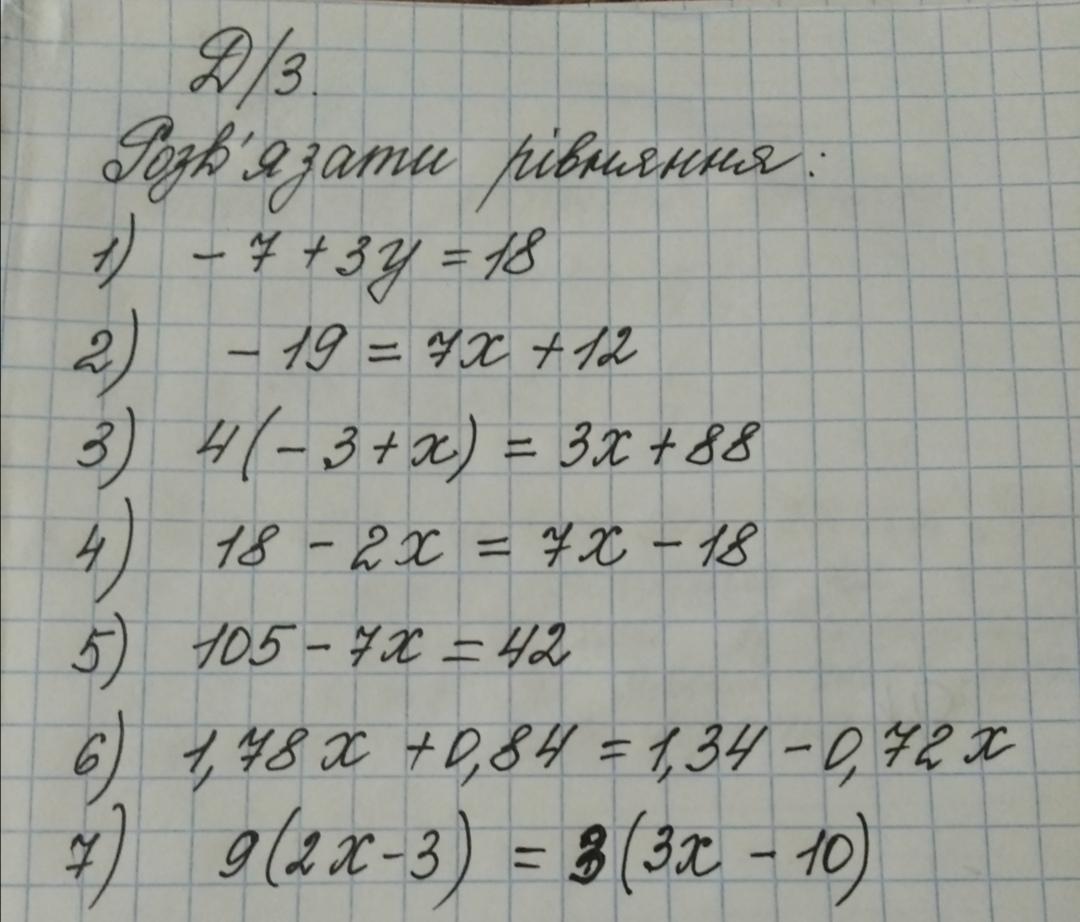 Д/з.
Розв'язати рівняння:
1) - 7 + 3y = 18
2) - 19 = 7x + 12
3) 4(- 3 + x) = 3x + 88
4) 18 - 2x = 7x - 18
5) 105 - 7x = 42
6) 1,78x + 0,84 = 1,34 - 0,72x
7) 9(2x - 3) = 3(3x - 10)